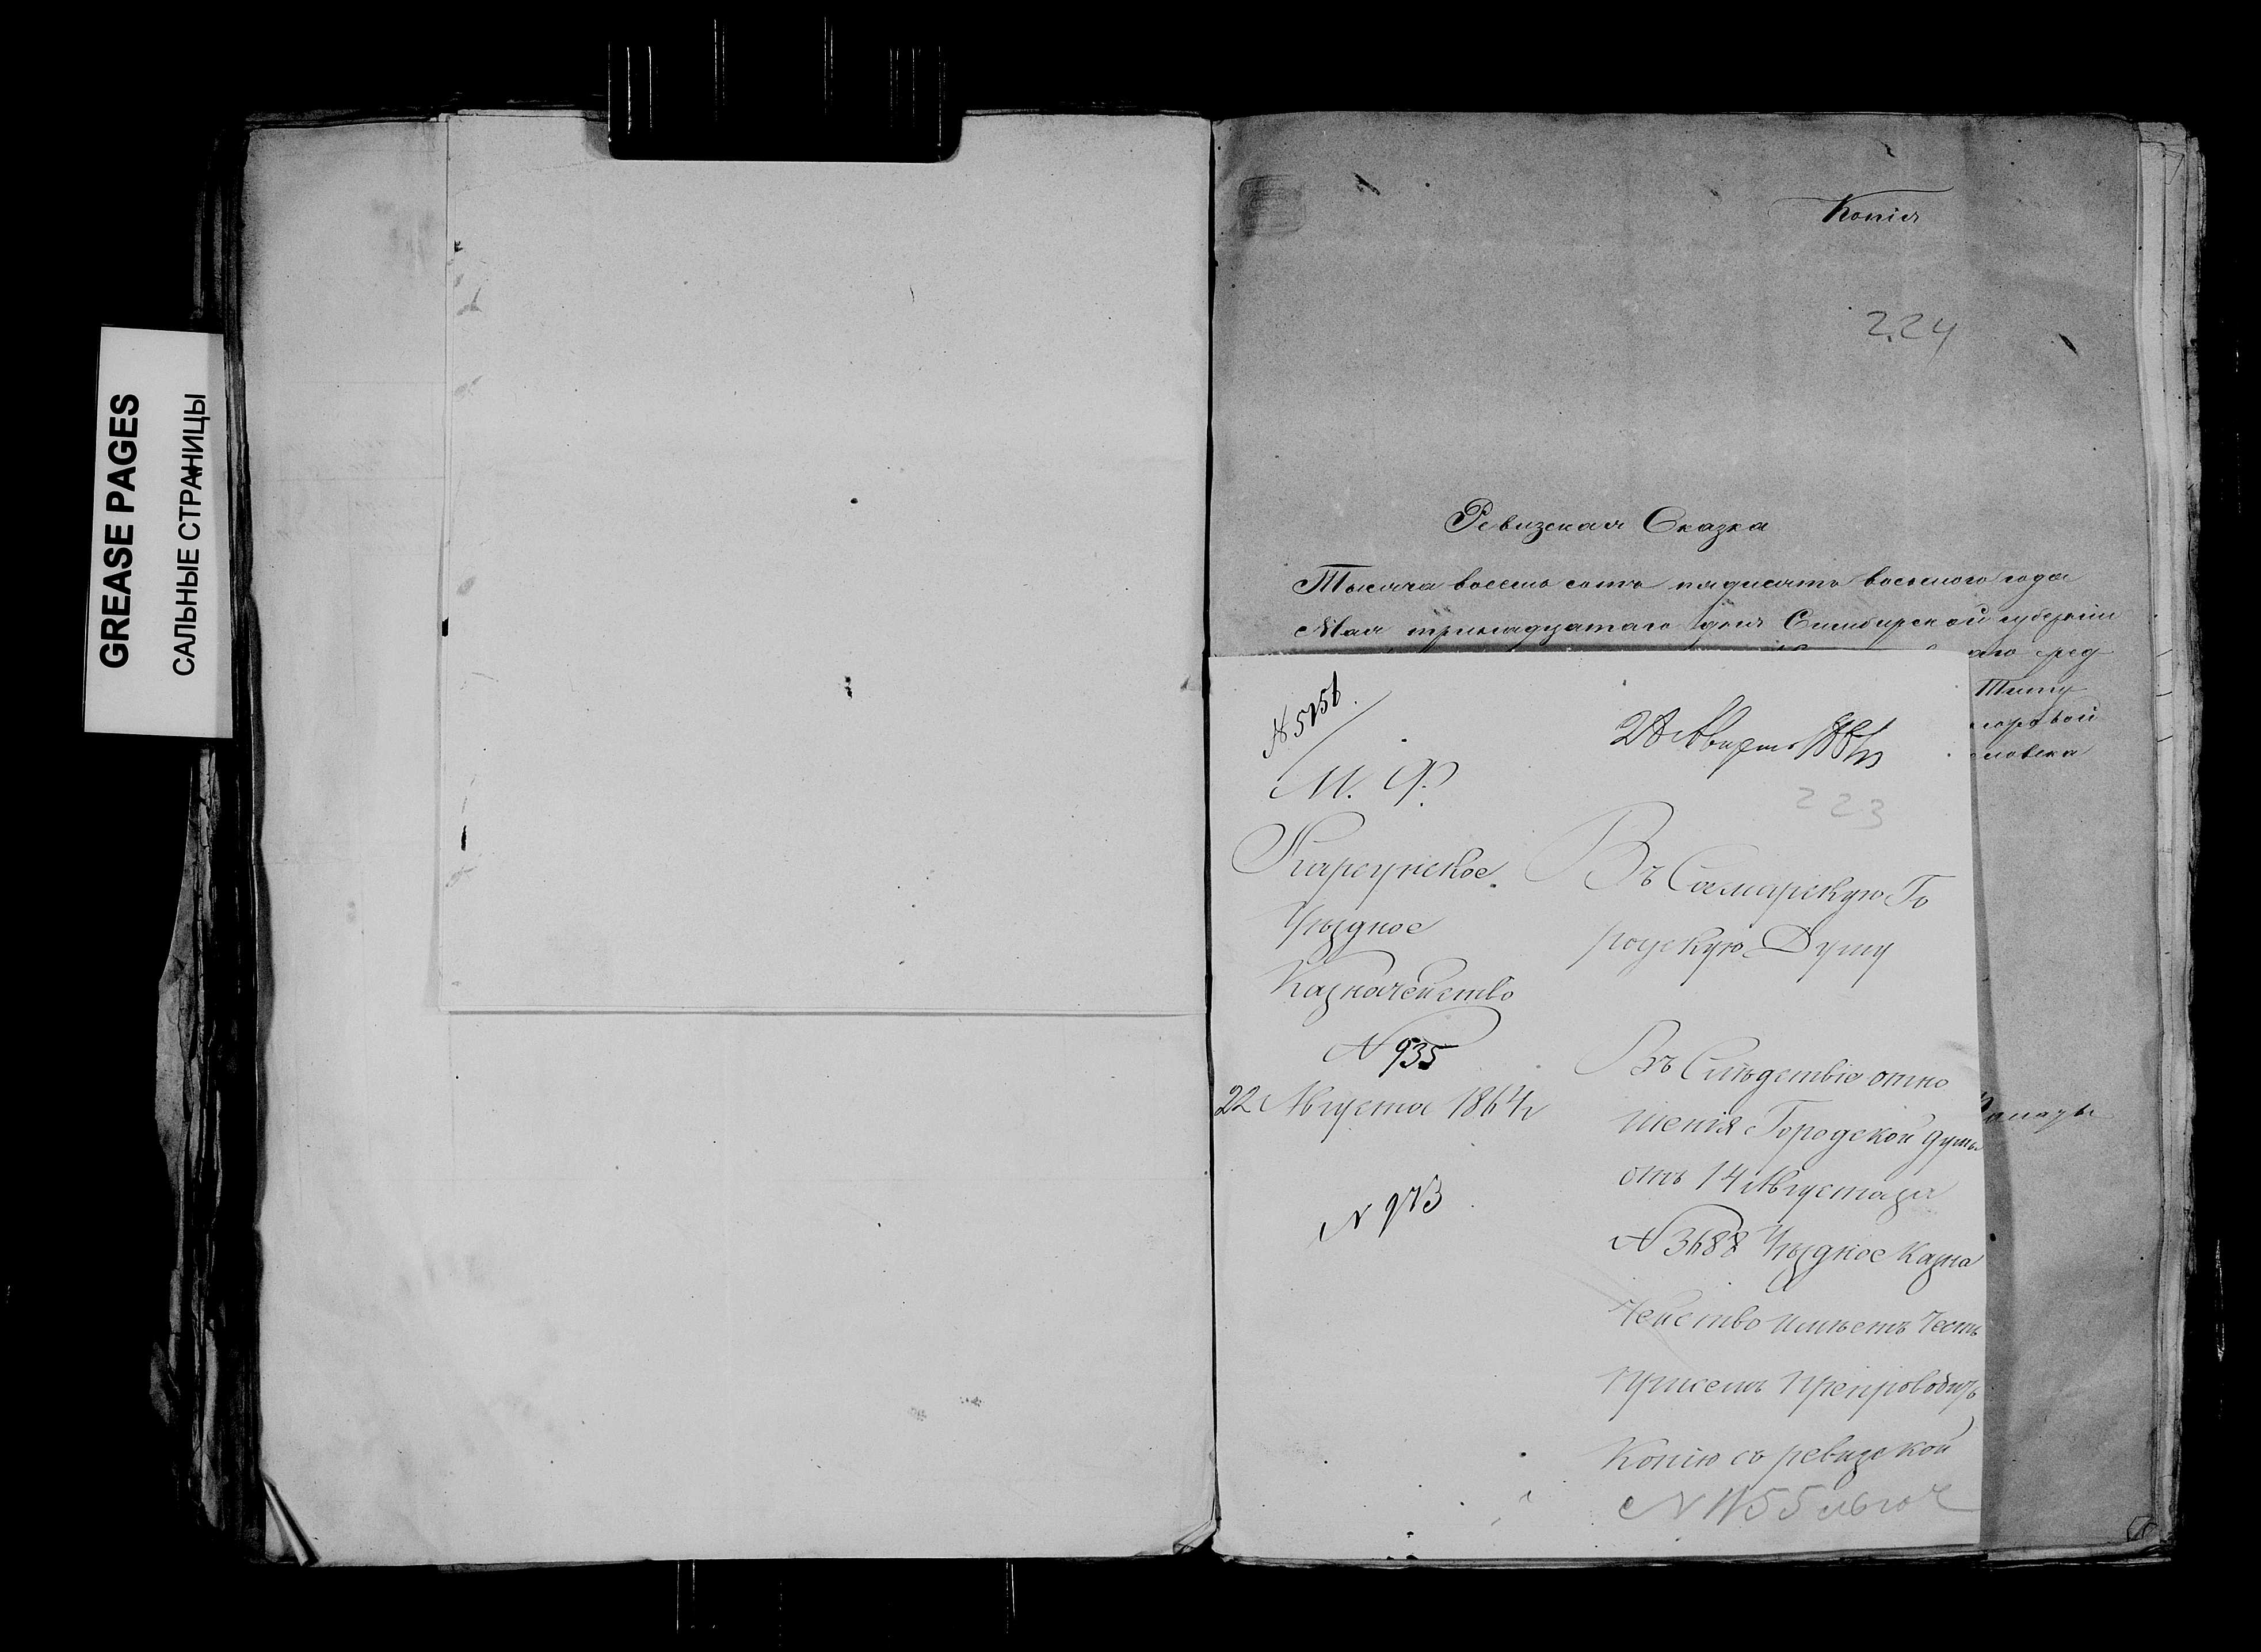 GREASE PAGES
САЛЬНЫЕ СТРАНИЦЫ
Копія
224
Ревизская Сказка
Тысяча восемь сотъ пядисятъ восьмого года
Мая тринадцатаго дня Симбирской губерніи
М. Ф.
Карсунское
Уѣздное
Казначейство
N 935
22 Августа 1864 г
N 973
28 Августа 1864
223
Въ Самарскую Го
родскую Думу
Въ Слѣдствіе отно
шенія Городской думы
отъ 14 Августа за
N 3688 Уѣздное Казна
чейство имѣетъ честь
при семъ препроводить
Копію съ ревизской